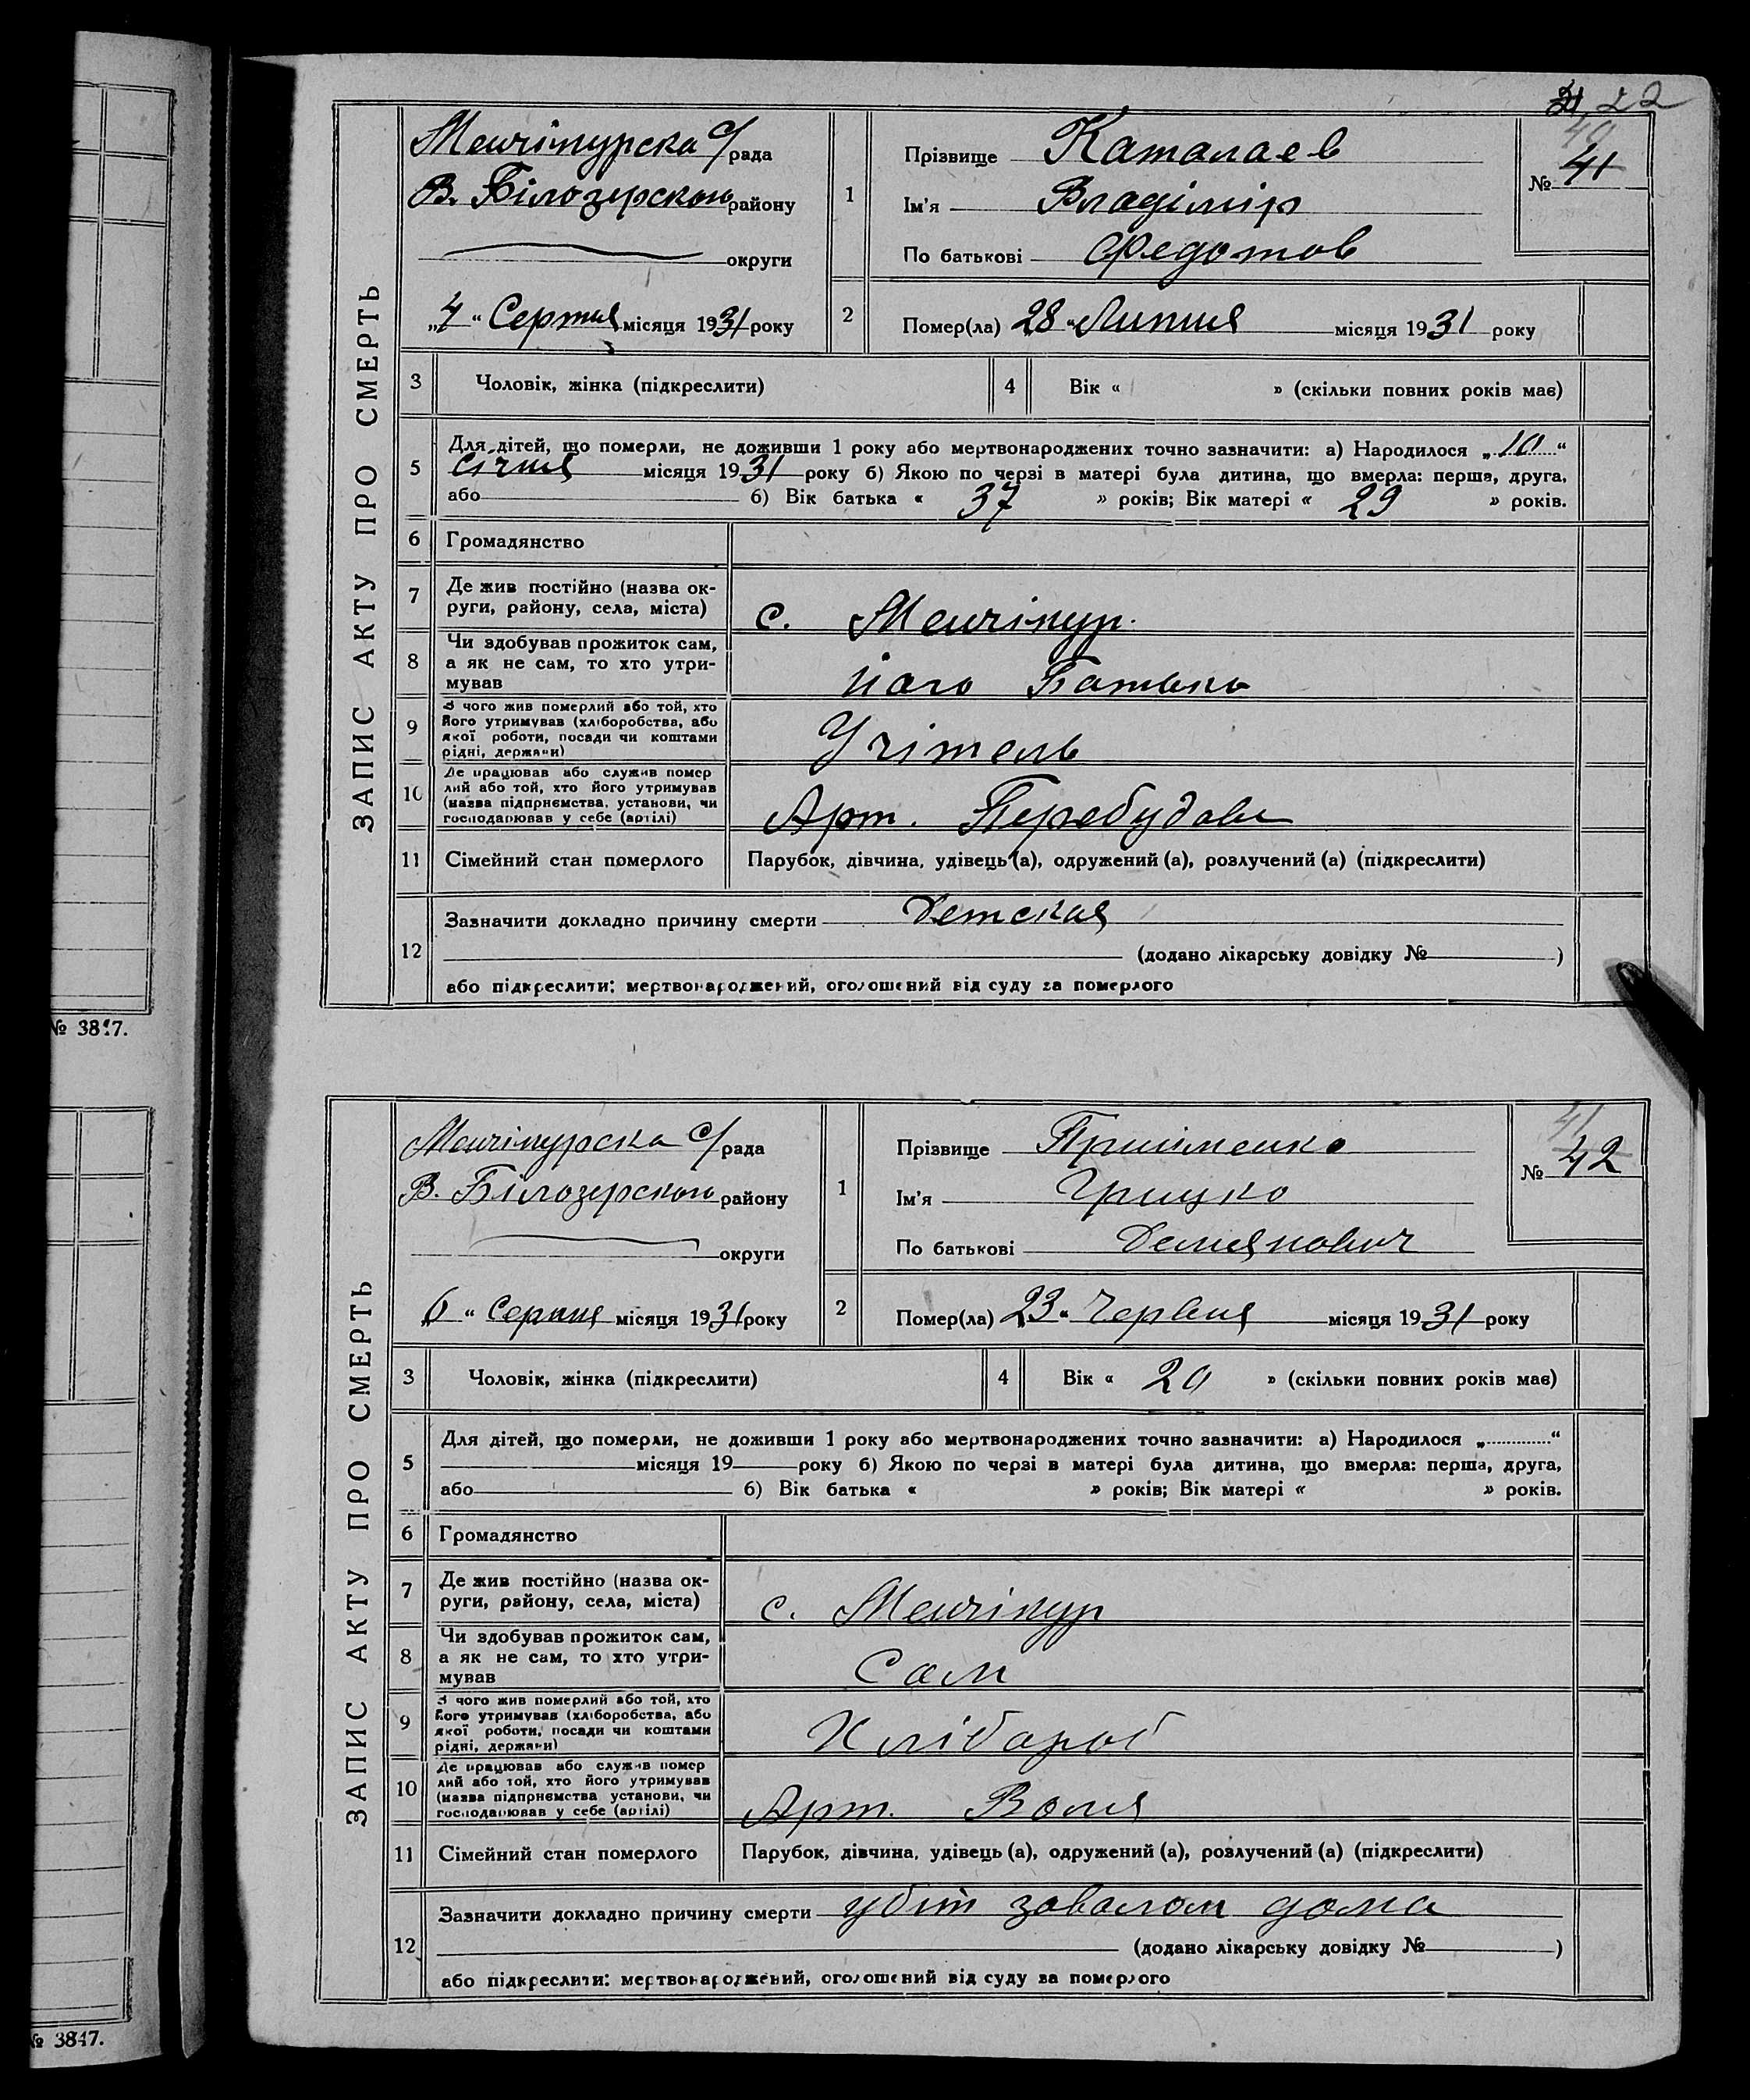 22
ЗАПИС АКТУ ПРО СМЕРТЬ
Менчікурска с/рада
В. Білозерского району
округи
„4“ Серпня місяця 1931 року
1
Прізвище Каталаев
Ім’я Владімір
По батькові Федотов
№ 41
40
2
Помер(ла) 28 „Липня місяця 1931 року
3 Чоловік, жінка (підкреслити)
4 Вік « » (скільки повних років має)
5 Для дітей, що померли, не доживши 1 року або мертвонароджених точно зазначити: а) Народилося „10“
Січня місяця 1931 року б) Якою по черзі в матері була дитина, що вмерла: перша, друга,
або б) Вік батька « 37 » років; Вік матері « 29 » років.
6 Громадянство
7 Де жив постійно (назва ок-
руги, району, села, міста)
с. Менчікур.
8 Чи здобував прожиток сам,
а як не сам, то хто утри-
мував
його Батько
9 З чого жив померлий або той, хто
його утримував (хліборобства, або
якої роботи, посади чи коштами
рідні, держави)
Учітель
10 Де працював або служив помер
лий або той, хто його утримував
(назва підприємства, установи, чи
господарював у себе (артілі)
Арт. Перебудова
11 Сімейний стан померлого
Парубок, дівчина, удівець (а), одружений (а), розлучений (а) (підкреслити)
12 Зазначити докладно причину смерти Детская
(додано лікарську довідку № )
або підкреслити: мертвонароджений, оголошений від суду за померлого
№ 3847.
ЗАПИС АКТУ ПРО СМЕРТЬ
Менчікурска с/рада
В. Білозерского району
округи
6 “ Серпня місяця 1931 року
1
Прізвище Прийменко
Ім’я Грицко
По батькові Демянович
№ 42
41
2
Помер(ла) 23 “ Червня місяця 1931 року
3 Чоловік, жінка (підкреслити)
4 Вік « 20 » (скільки повних років має)
5 Для дітей, що померли, не доживши 1 року або мертвонароджених точно зазначити: а) Народилося „ “
місяця 19 року б) Якою по черзі в матері була дитина, що вмерла: перша, друга,
або б) Вік батька « » років; Вік матері « » років.
6 Громадянство
7 Де жив постійно (назва ок-
руги, району, села, міста)
с. Менчікур
8 Чи здобував прожиток сам,
а як не сам, то хто утри-
мував
Сам
9 З чого жив померлий або той, хто
його утримував (хліборобства, або
якої роботи, посади чи коштами
рідні, держави)
Хлібороб
10 Де працював або служив помер
лий або той, хто його утримував
(назва підприємства установи, чи
господарював у себе (артілі)
Арт. Воля
11 Сімейний стан померлого
Парубок, дівчина, удівець (а), одружений (а), розлучений (а) (підкреслити)
12 Зазначити докладно причину смерти убіт завалом дома
(додано лікарську довідку № )
або підкреслити: мертвонароджений, оголошений від суду за померлого
№ 3847.